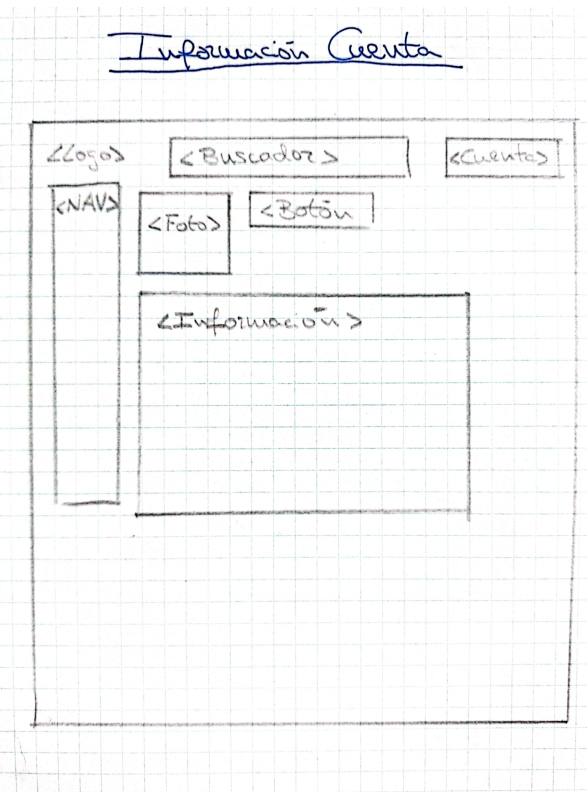 Información Cuenta
<Logo> <Buscador> <Cuenta>
<NAV> <Foto> <Botón
<Información>